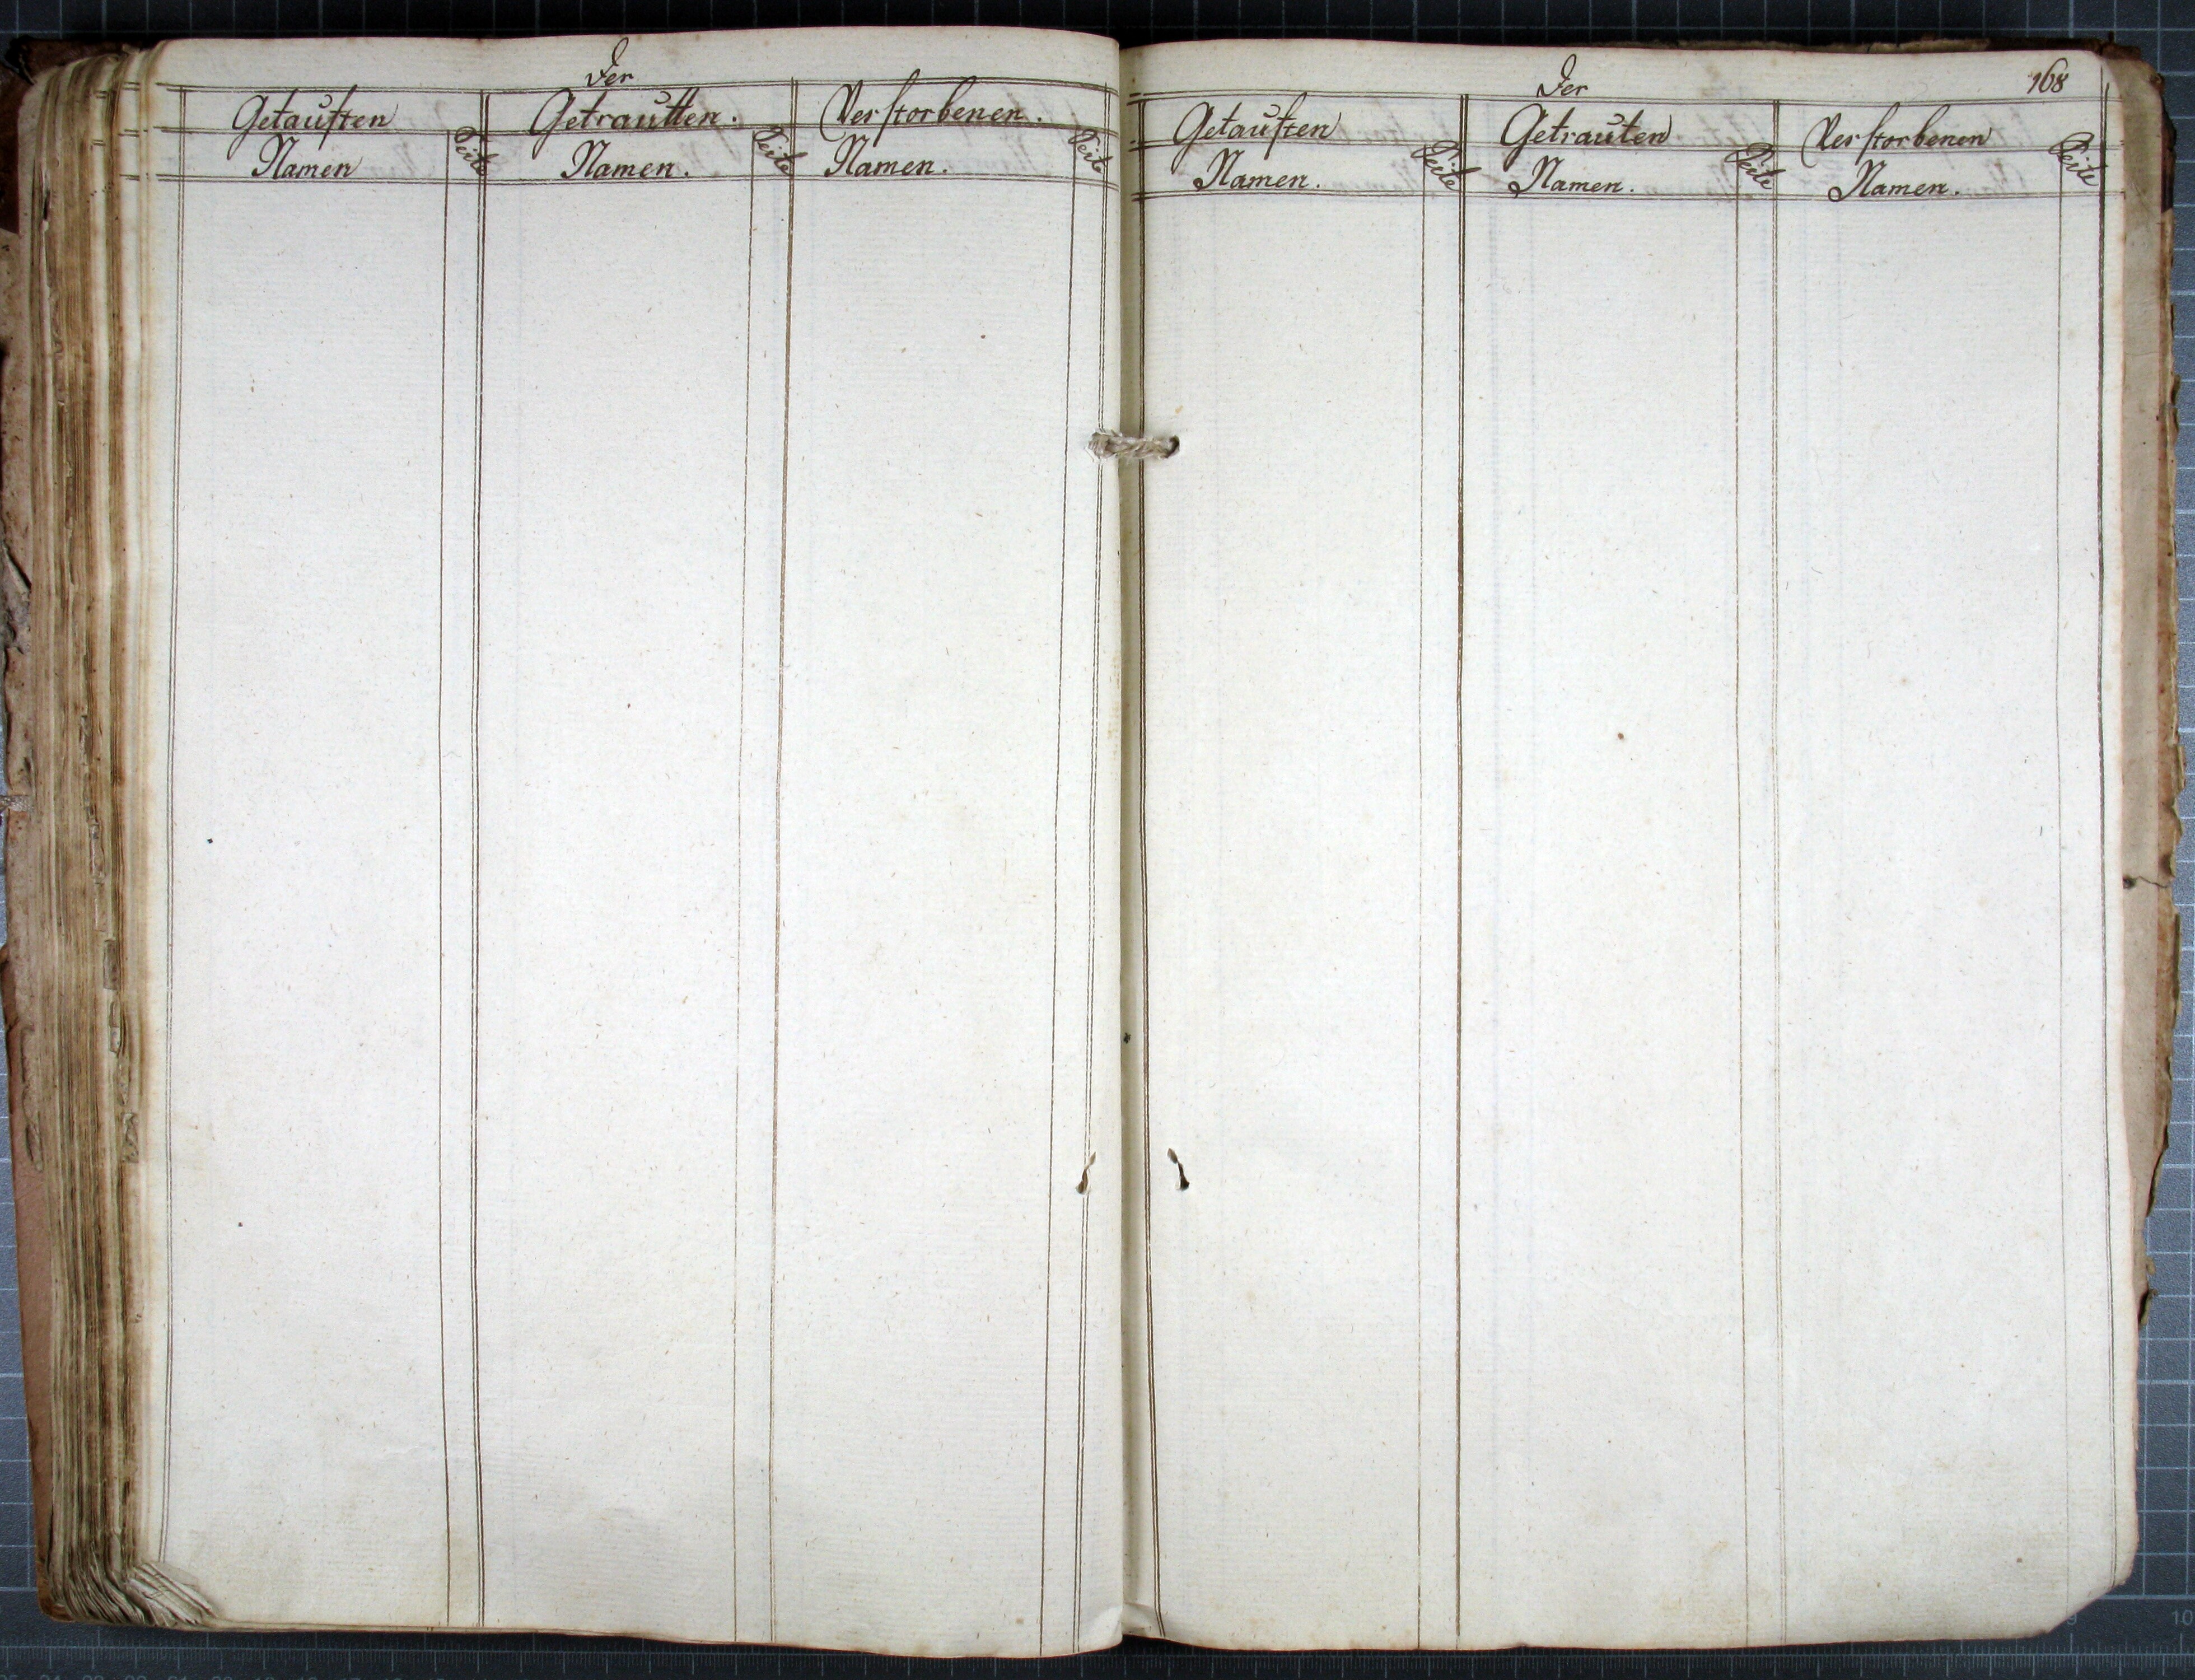 Der
Getauften Getrautten. Verstorbenen.
Namen Seite Namen. Seite Namen. Seite
Der 168
Getauften Getrauten Verstorbenen
Namen. Seite Namen. Seite Namen. Seite